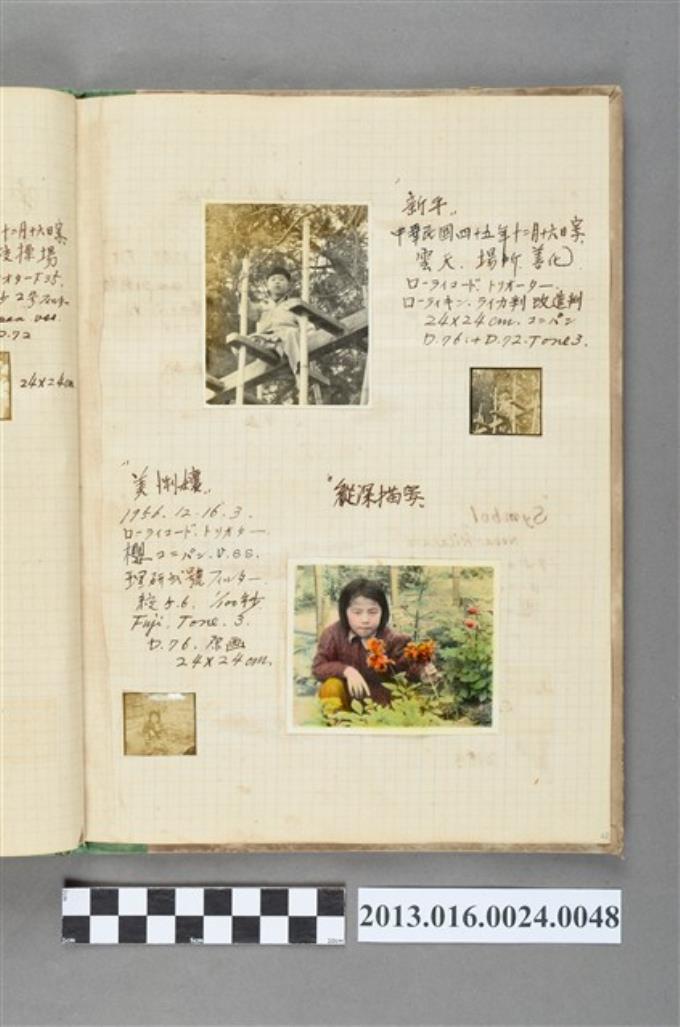 十二月十六日寫
操場
24×24cm
D.72
"新年"
中華民國四十五年十二月十六日寫
雲天. 場所. 善化
ローライコード. トリオーター.
ローライキン. ライカ判 改造判
24×24cm. コニパン
D.76. + D.72. Tone 3.
"美 樓"
1956. 12. 16. 3.
ローライコード. トリオター.
櫻コニパン. V.SS.
理研 號 フィルター.
絞 5.6. 1/100秒
Fuji. Tone. 3.
D.76. 原画
24×24cm.
"縱深描寫
Symbol
42
0cm 5cm 10cm
2013.016.0024.0048